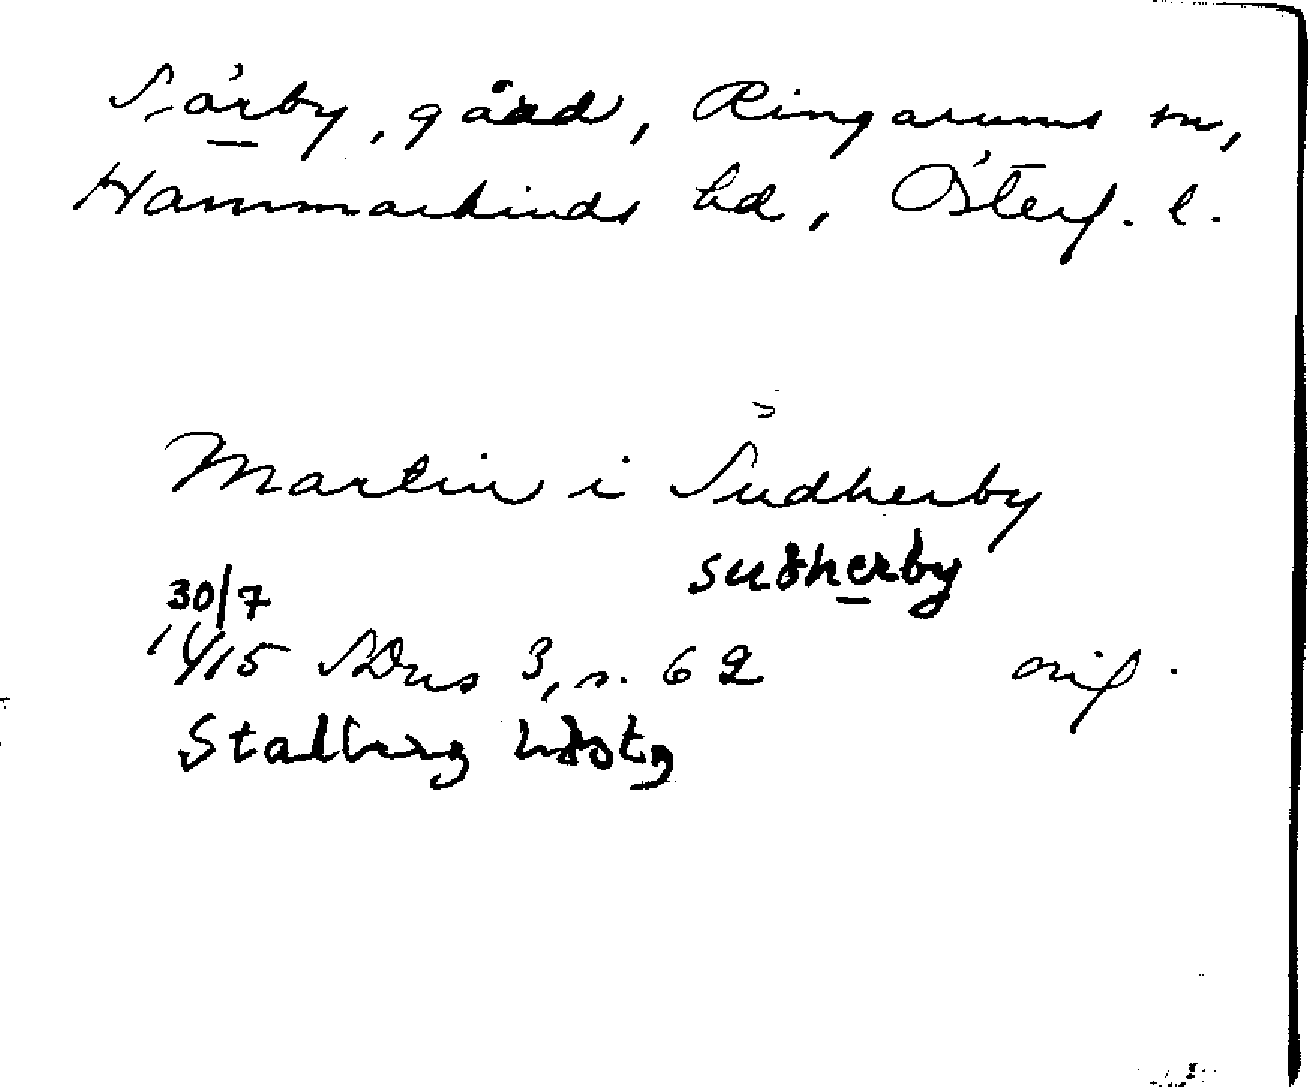 Sörby, gård, Ringarums sn,
Hammarkinds hd, Österg. l.
Martin i Sudherby
sudherby
30/7
1415 SDns 3, s. 62
Stalberg